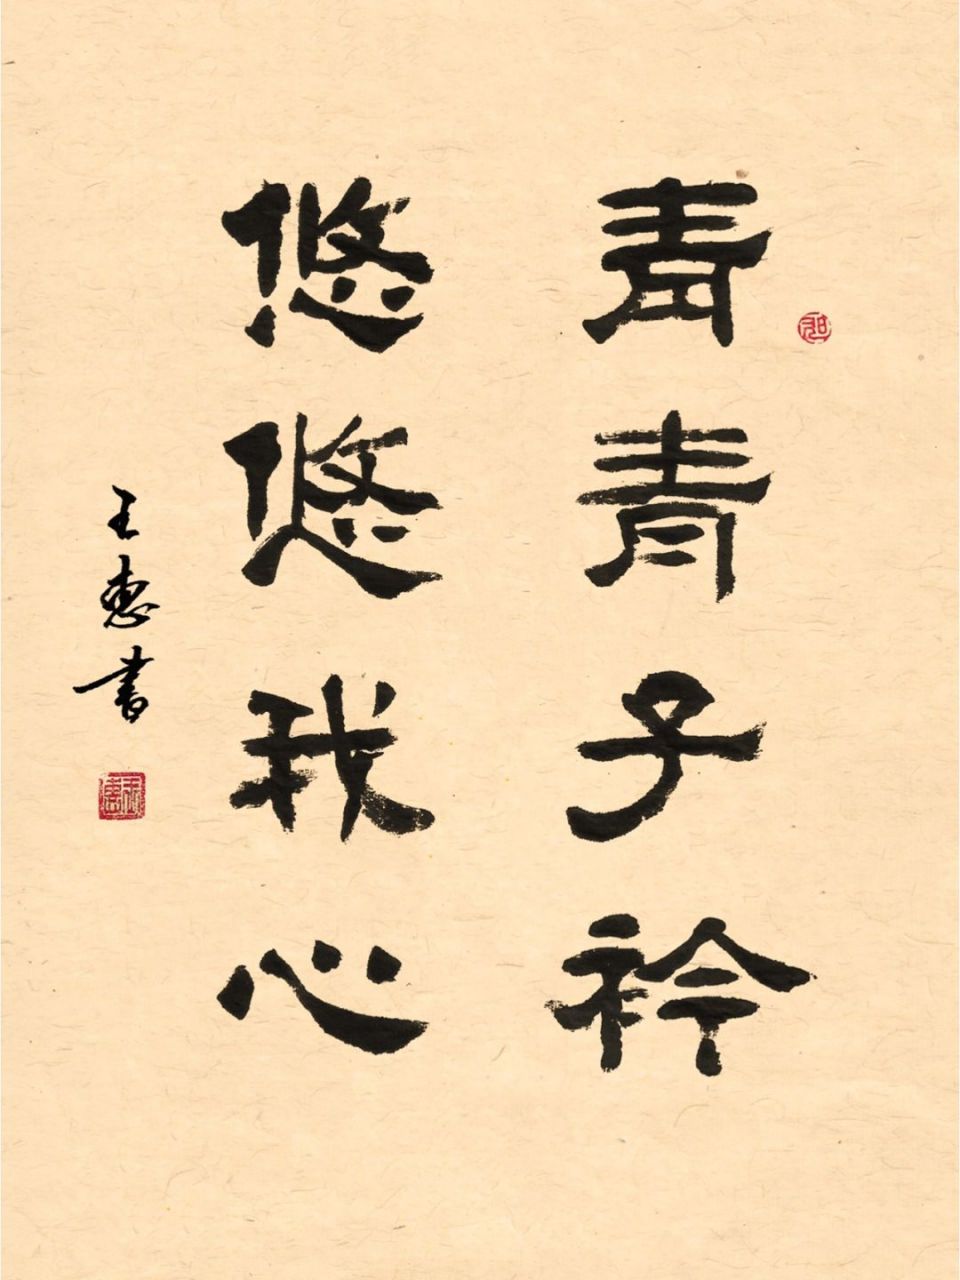 青青子衿
悠悠我心
王惠書